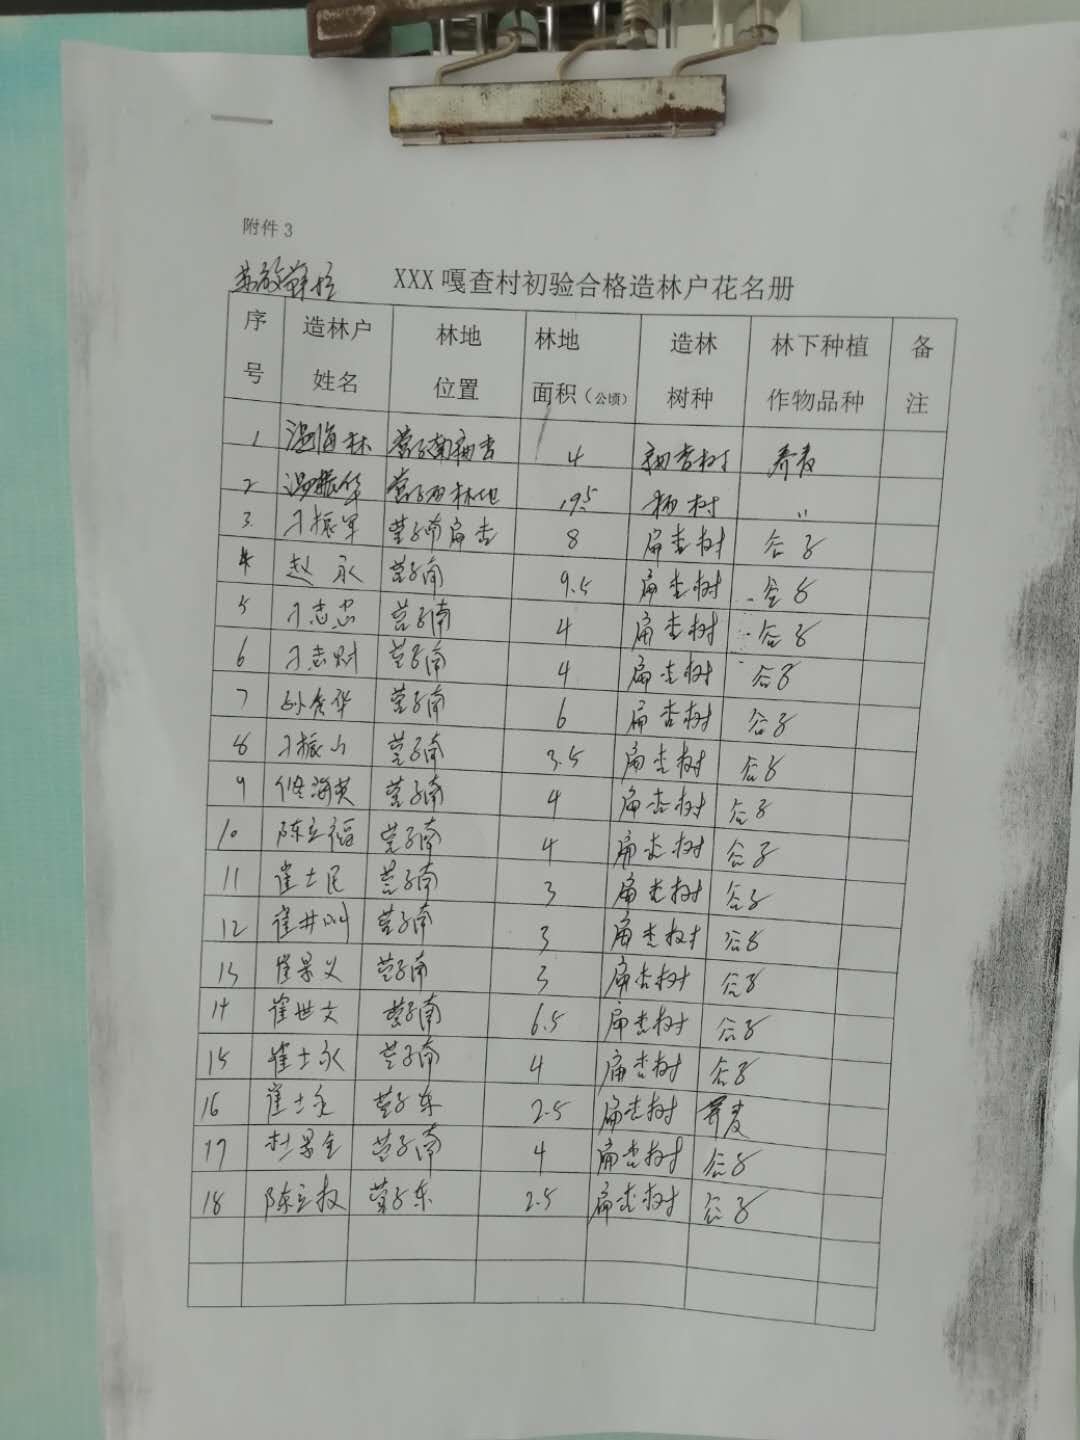 附件 3
XXX 嘎查村初验合格造林户花名册
序号 造林户姓名 林地位置 林地面积（公顷） 造林树种 林下种植作物品种 备注
1 温海林 营子南扁杏 4 扁杏树 荞麦
2 温振华 营子西林地 19.5 杨树 〃
3 刁振军 营子南扁杏 8 扁杏树 谷子
4 赵永 营子南 9.5 扁杏树 谷子
5 刁志忠 营子南 4 扁杏树 谷子
6 刁志财 营子南 4 扁杏树 谷子
7 营子南 6 扁杏树 谷子
8 刁振山 营子南 3.5 扁杏树 谷子
9 佟海英 营子南 4 扁杏树 谷子
10 陈立福 营子南 4 扁杏树 谷子
11 崔士民 营子南 3 扁杏树 谷子
12 营子南 3 扁杏树 谷子
13 崔景义 营子南 3 扁杏树 谷子
14 崔世文 营子南 6.5 扁杏树 谷子
15 崔士永 营子南 4 扁杏树 谷子
16 营子东 2.5 扁杏树 荞麦
17 杜景全 营子南 4 扁杏树 谷子
18 陈立权 营子东 2.5 扁杏树 谷子